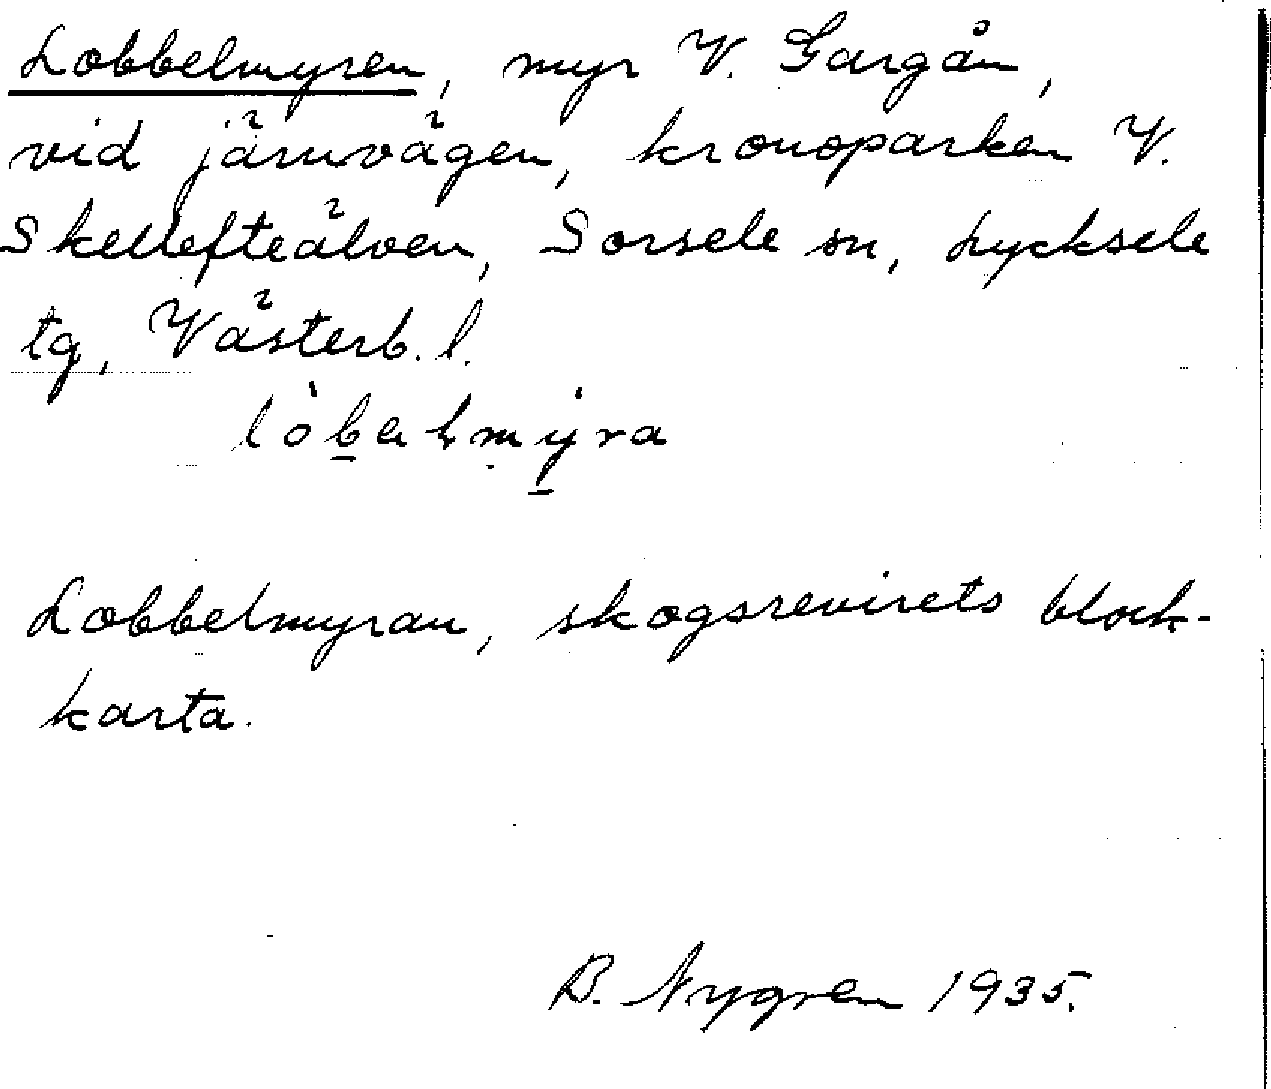 Lobbelmyren, myr V. Gargån,
vid järnvägen, kronoparken V.
Skellefteälven, Sorsele sn, Lycksele
tg, Västerb. l.
Lobbelmyran, skogsrevirets block-
karta.
B. Nygren 1935.